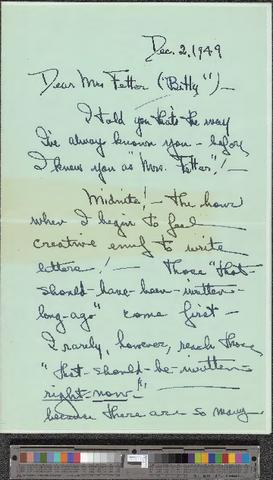 Dec. 2, 1949
Dear Mrs Fetter ("Bitty")—
I told you that's the way
I've alway known you — before
I knew you as "Mrs. Fetter"!—
Midnite! — the hour
when I begin to feel
creative enuf to write
letters! — Those "that-
should-have-been-written-
long-ago" come first —
I rarely, however, reach those
"that-should-be-written-
right-now"!
because there are so many